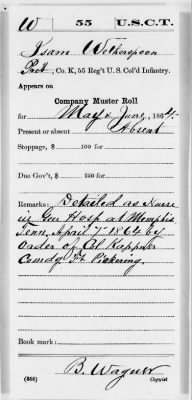 W 55 U.S.C.T.
Isam Wetherspoon
Pvt, Co. K, 55 Reg't U. S. Col'd Infantry.
Appears on
Company Muster Roll
for May & June, 1864.
Present or absent Absent
Stoppage, $ 100 for
Due Gov't, $ 100 for
Remarks: Detailed as Nurse
in Gen Hosp at Memphis
Tenn, April 7 1864 by
order of Col Kappner
Comdg Ft Pickering.
Book mark:
B. Wagner
(358) Copyist